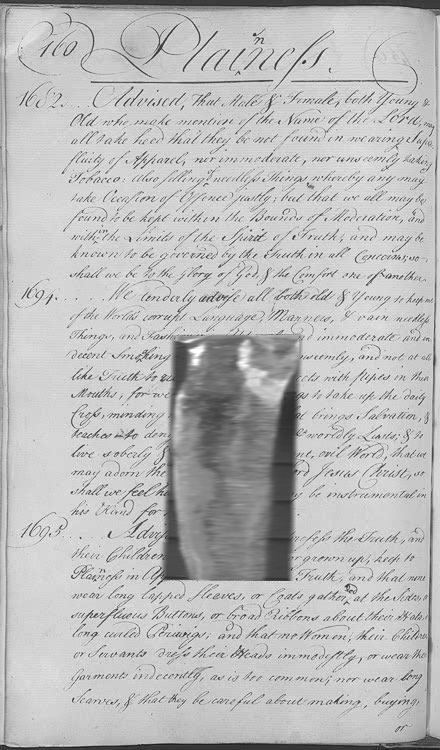 160 Plainness.
1682... Advised, That Male & Female, both Young &
Old who make mention of the Name of the Lord, may
all take heed that they be not found in wearing Supe
fluity of Apparel, nor immoderate, nor unseemly taking
Tobacco: Also selling needless Things whereby any may
take Occasion of Offence justly; but that we all may be
found to be kept within the Bounds of Moderation, and
within the Limits of the Spirit of Truth; and may be
known to be governed by the Truth in all Concerns, so
shall we be to the Glory of God, & the Comfort one of another.
1694..... We tenderly advise all both old & Young to keep out
of the World's corrupt Language, Manners, & vain needless
Things, and immoderate and in
decent Smoaking unseemly, and not at all
like Truth to with pipes in their
Mouths; for we to take up the daily
Cross, minding brings Salvation, &
teaches to deny worldly Lusts; & to
live soberly & evil World, that we
may adorn the Jesus Christ, so
shall we feel be instrumental in
his Hand for
1695.. profess the Truth, and
their Children grown up, keep to
Plainness in Truth, and that none
wear long lapped Sleaves, or Coats gathered at the Sides, or
superfluous Buttons, or broad Ribbons about their Hats, or
long curled Periwigs; and that no Women, their Children
or Servants dress their Heads immodestly, or wear their
Garments indecently, as is too common; nor wear long
Scarves, & that they be careful about making, buying,
or